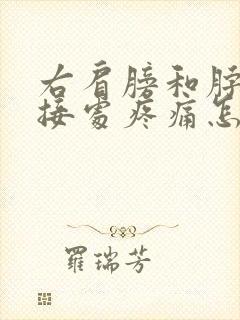 右肩膀和脖
接處疼痛怎
羅瑞芳